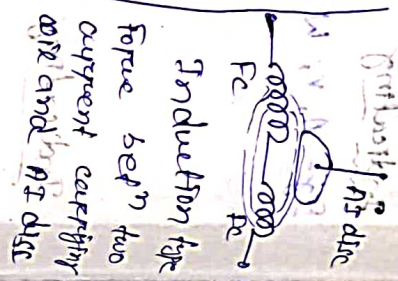 Al disc
Fc
Fc
Induction type
Force betn two
current carrying
wire and Al disc